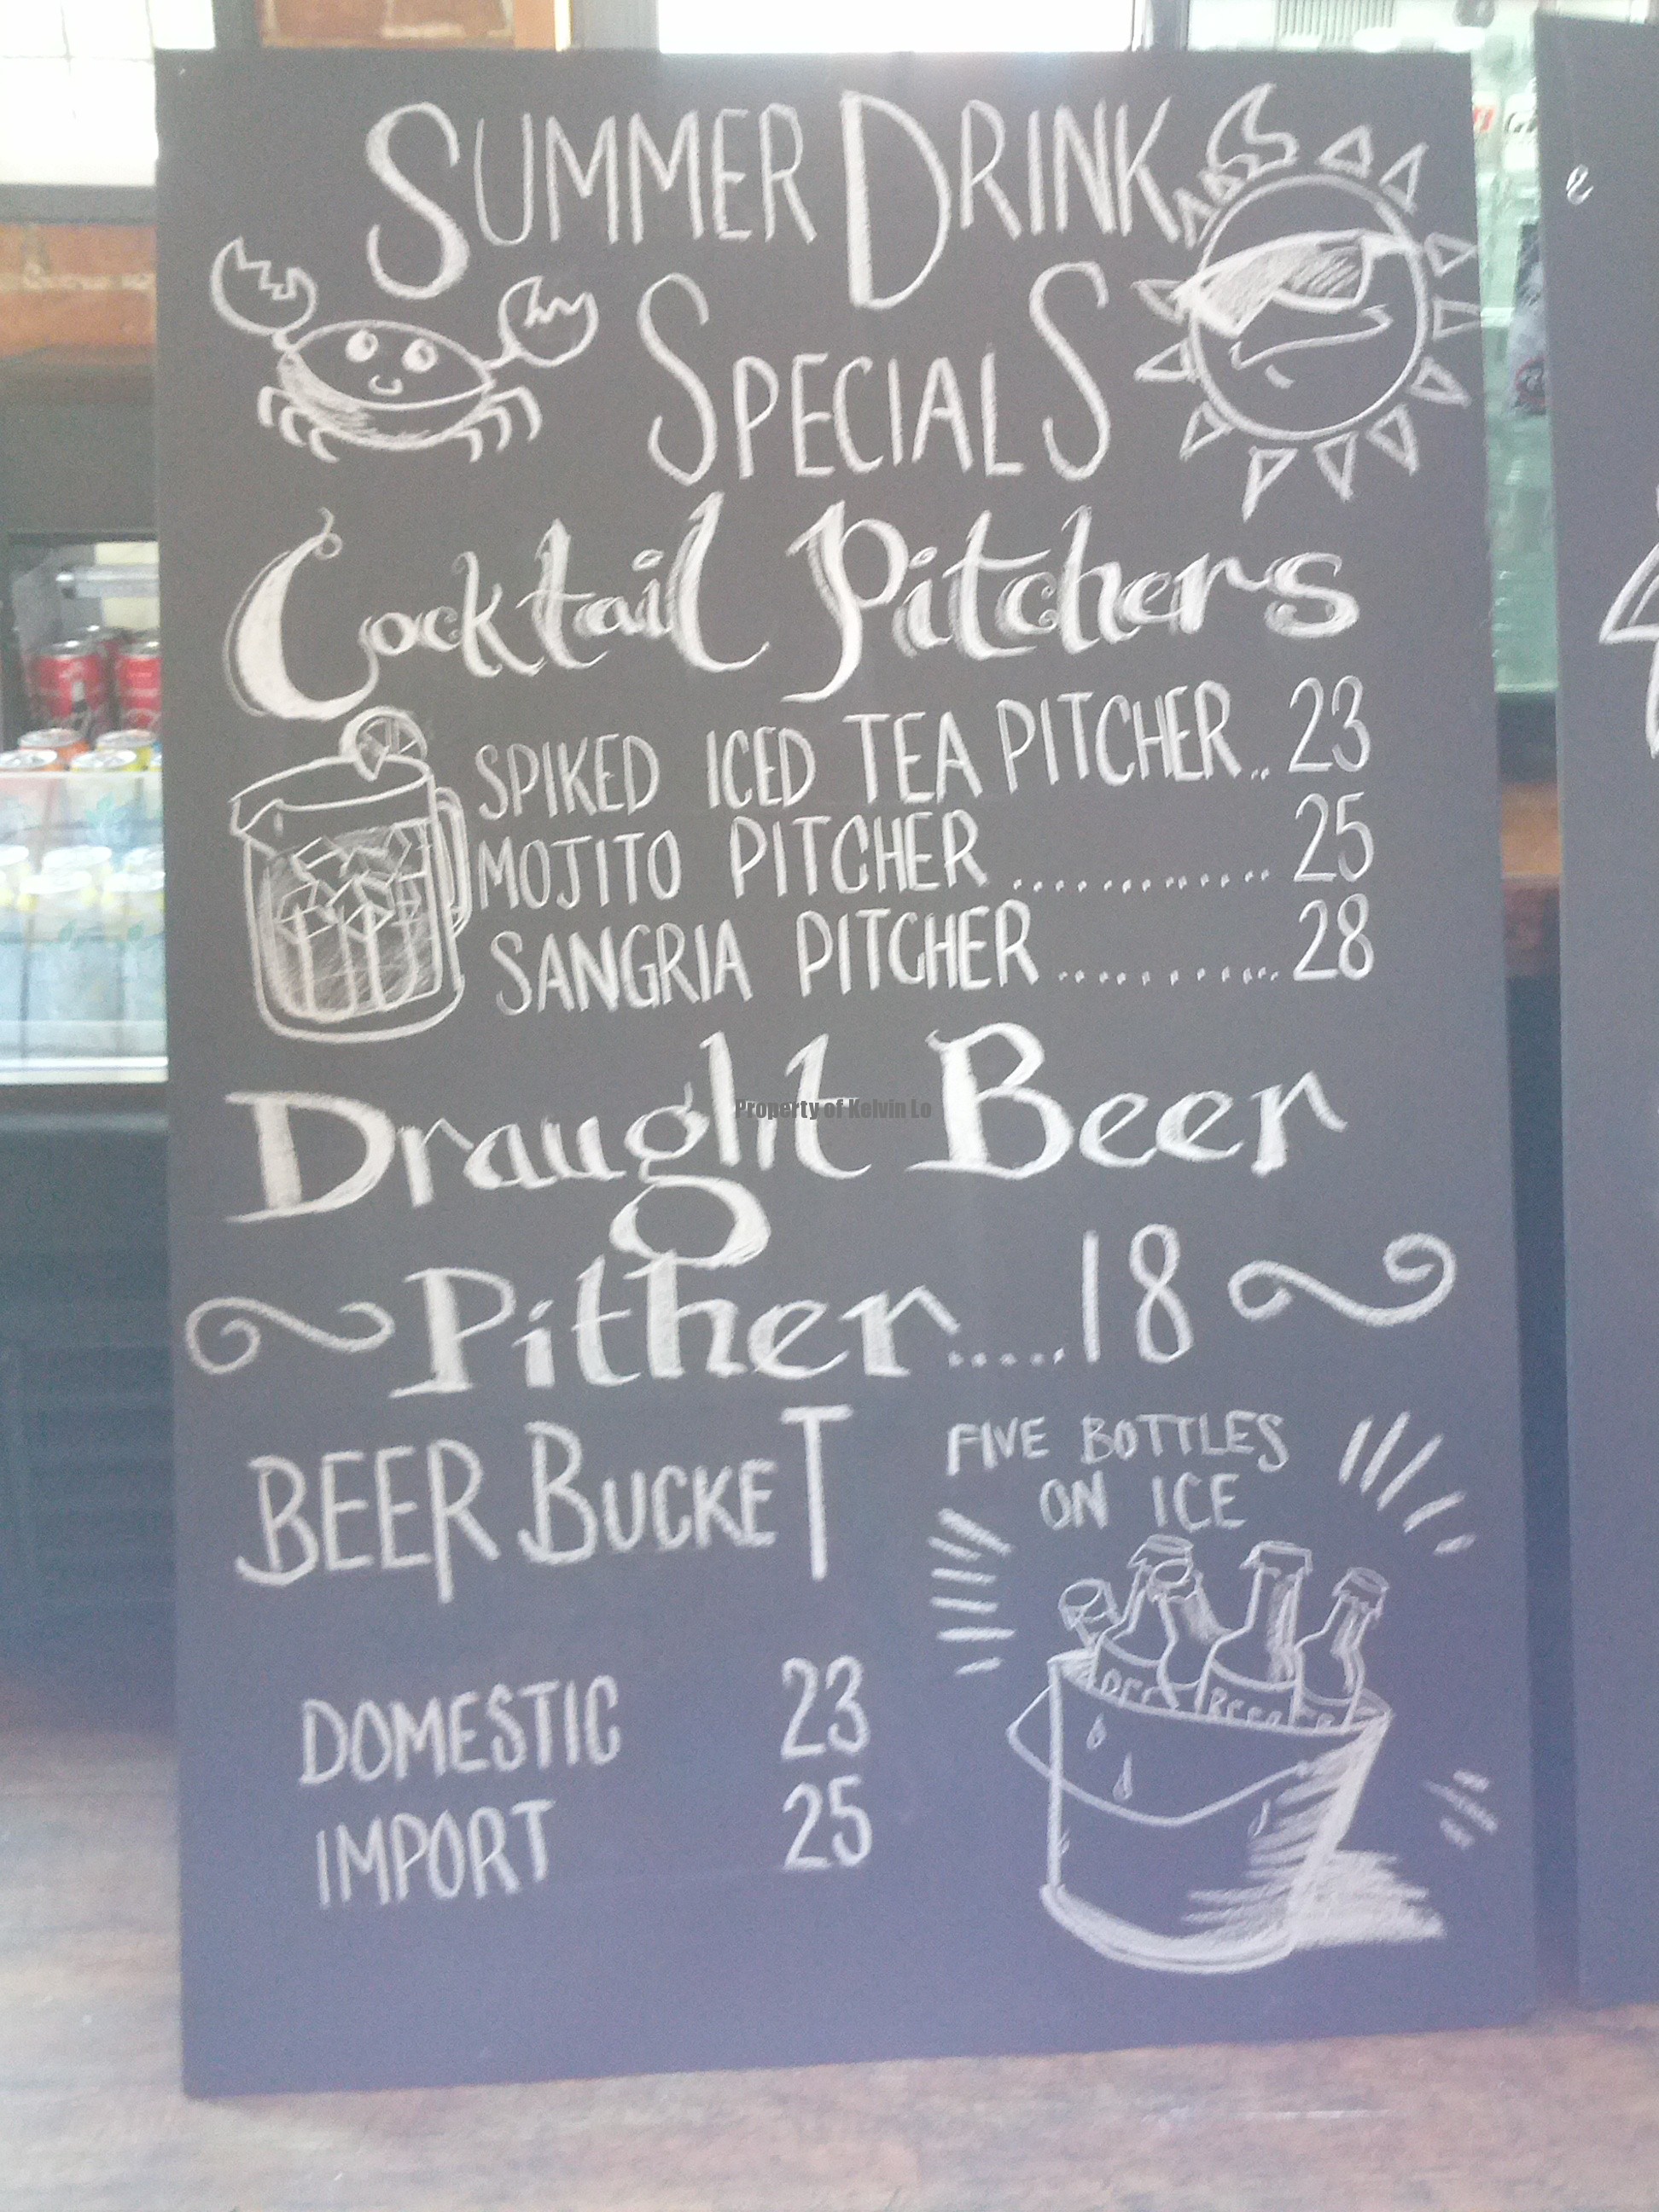 SUMMER DRINK
SPECIALS
Cocktail Pitchers
SPIKED ICED TEA PITCHER.. 23
MOJITO PITCHER ............. 25
SANGRIA PITCHER ............ 28
Draught Beer
Property of Kelvin Lo
Pither.....18
BEER BUCKET
FIVE BOTTLES
ON ICE
DOMESTIC 23
IMPORT 25